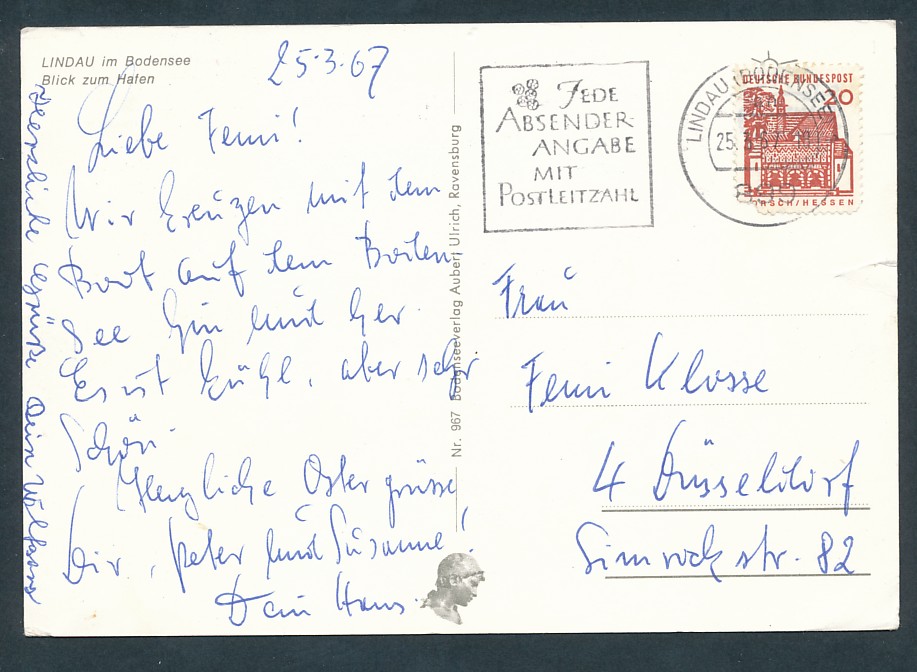 LINDAU im Bodensee
Blick zum Hafen
25·3·67
Liebe Femi!
Wir kreuzen mit dem
Boot auf dem Boden-
see hin und her.
Es ist kühl, aber sehr
schön.
Herzliche Ostergrüsse
Dir, Peter und Susanne!
Dein Hans.
Herzliche Grüße Dein Wolfgang
Nr. 967 Bodenseeverlag Auberl Ulrich, Ravensburg
JEDE
ABSENDER-
ANGABE
MIT
POSTLEITZAHL
LINDAU (BODENSEE)
25. 3. 67
DEUTSCHE BUNDESPOST
20
LORSCH/HESSEN
Frau
Femi Klosse
4 Düsseldorf
Simrockstr. 82